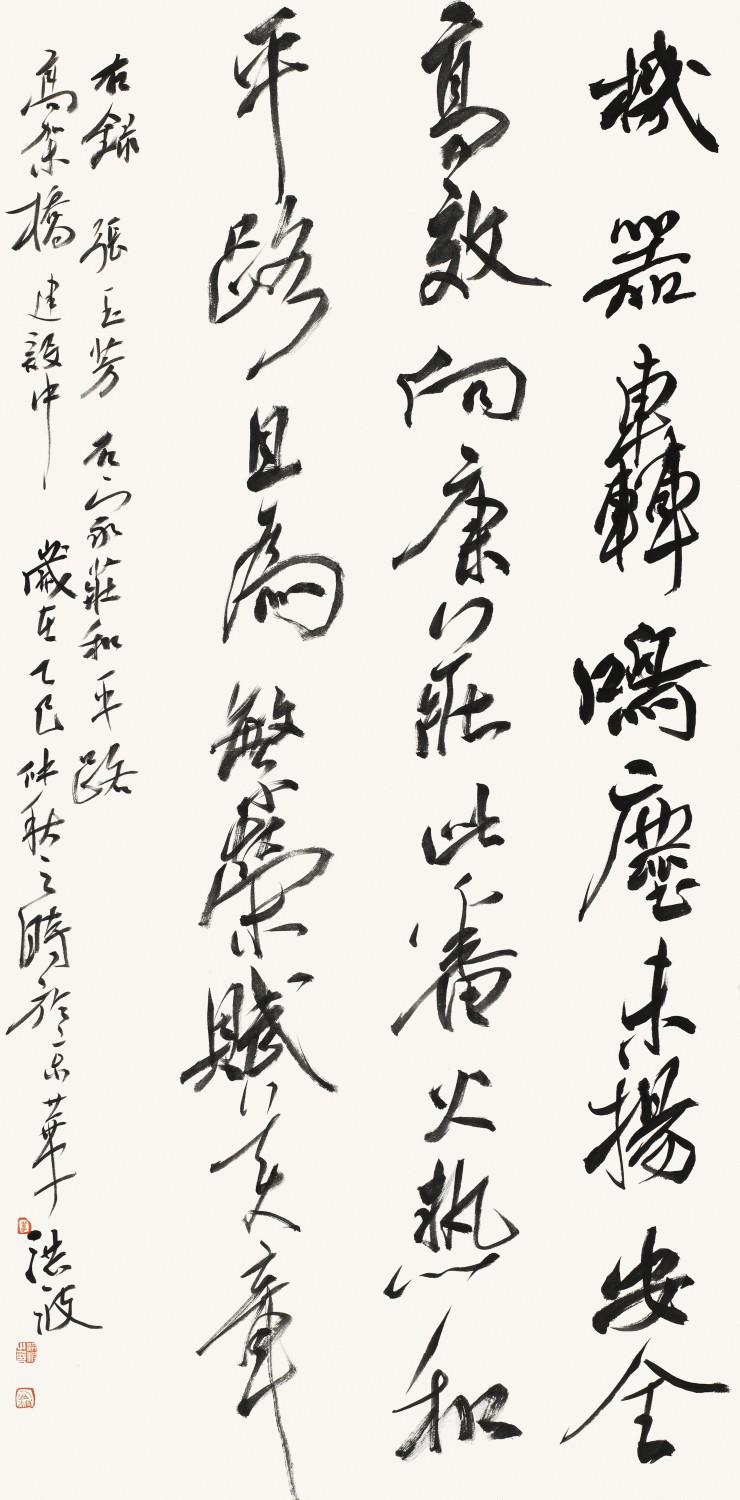 機器轟鳴塵未揚安全
高效向康莊此番火熱和
平路且為繁榮賦美章
右錄張玉芳石家莊和平路
高架橋建設中歲在乙巳仲秋之時於京華
洪波